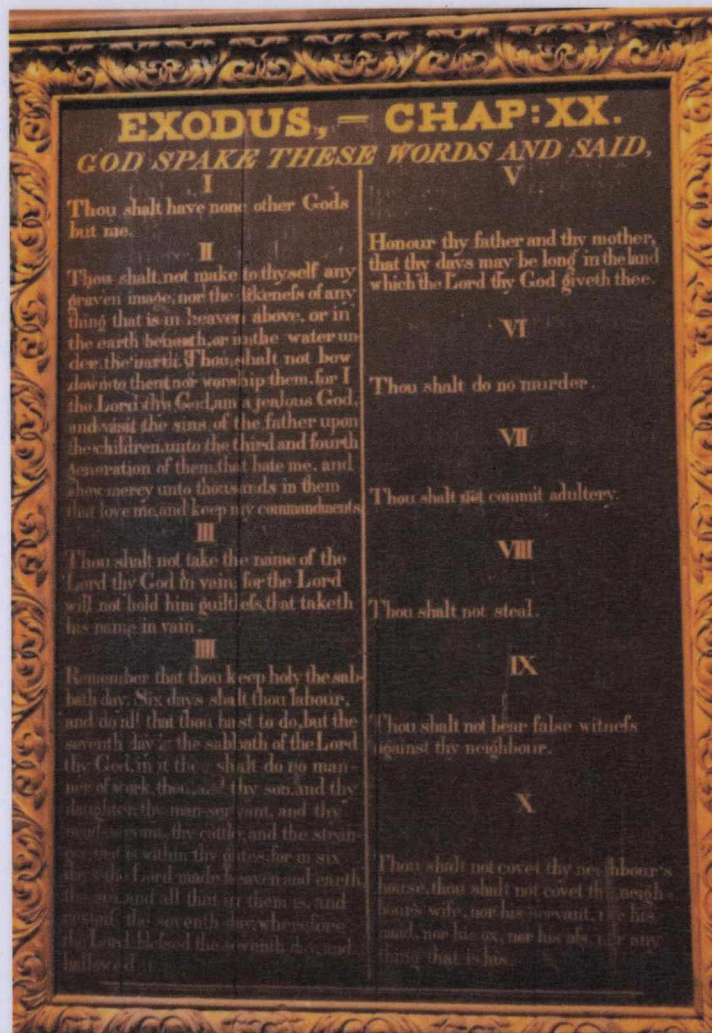 EXODUS, = CHAP: XX.
GOD SPAKE THESE WORDS AND SAID,
I
Thou shalt have none other Gods
but me.
II
Thou shalt not make to thyself any
graven image, nor the likenefs of any
thing that is in heaven above, or in
the earth beneath, or in the water un
der the earth. Thou shalt not bow
down to them nor worship them, for I
the Lord thy God, am a jealous God,
and visit the sins of the father upon
the children, unto the third and fourth
generation of them, that hate me, and
show mercy unto thousands in them
that love me, and keep my commandments
III
Thou shalt not take the name of the
Lord thy God in vain, for the Lord
will not hold him guiltlefs, that taketh
his name in vain.
IIII
Remember that thou keep holy the sab-
bath day. Six days shalt thou labour,
and do all that thou hast to do, but the
seventh day is the sabbath of the Lord
thy God, in it thou shalt do no man-
ner of work, thou, and thy son, and thy
daughter, thy man-servant, and thy
maid-servant, thy cattle, and the stran-
ger, that is within thy gates, for in six
days the Lord made heaven and earth,
the sea, and all that in them is, and
rested the seventh day, wherefore
the Lord blefsed the seventh day, and
hallowed it.
V
Honour thy father and thy mother,
that thy days may be long in the land
which the Lord thy God giveth thee.
VI
Thou shalt do no murder.
VII
Thou shalt not commit adultery.
VIII
Thou shalt not steal.
IX
Thou shalt not bear false witnefs
against thy neighbour.
X
Thou shalt not covet thy neighbour's
house, thou shalt not covet thy neigh-
bour's wife, nor his servant, nor his
maid, nor his ox, nor his afs, nor any
thing that is his.